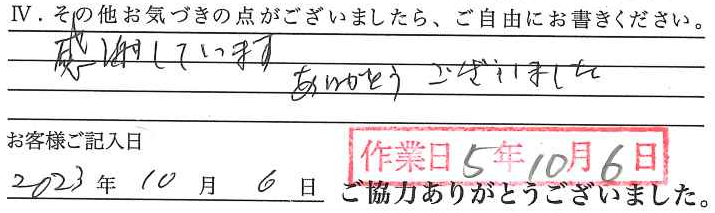 Ⅳ．その他お気づきの点がございましたら、ご自由にお書きください。
感謝しています
ありがとう ございました
お客様ご記入日
作業日 5年10月6日
2023年 10月 6日
ご協力ありがとうございました。